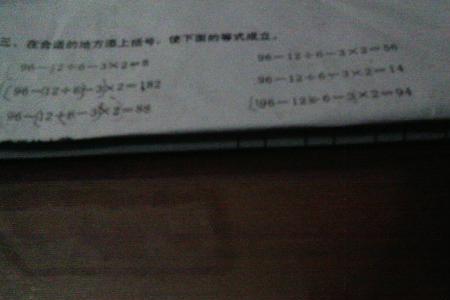 三、在合适的地方添上括号，使下面的等式成立。
96－12÷6－3×2＝8
96－12÷6－3×2＝56
(96－(12÷6)－3)×2＝182
96－12÷6－3×2＝14
96－(12÷6－3×2)＝88
(96－12÷6－3)×2＝94